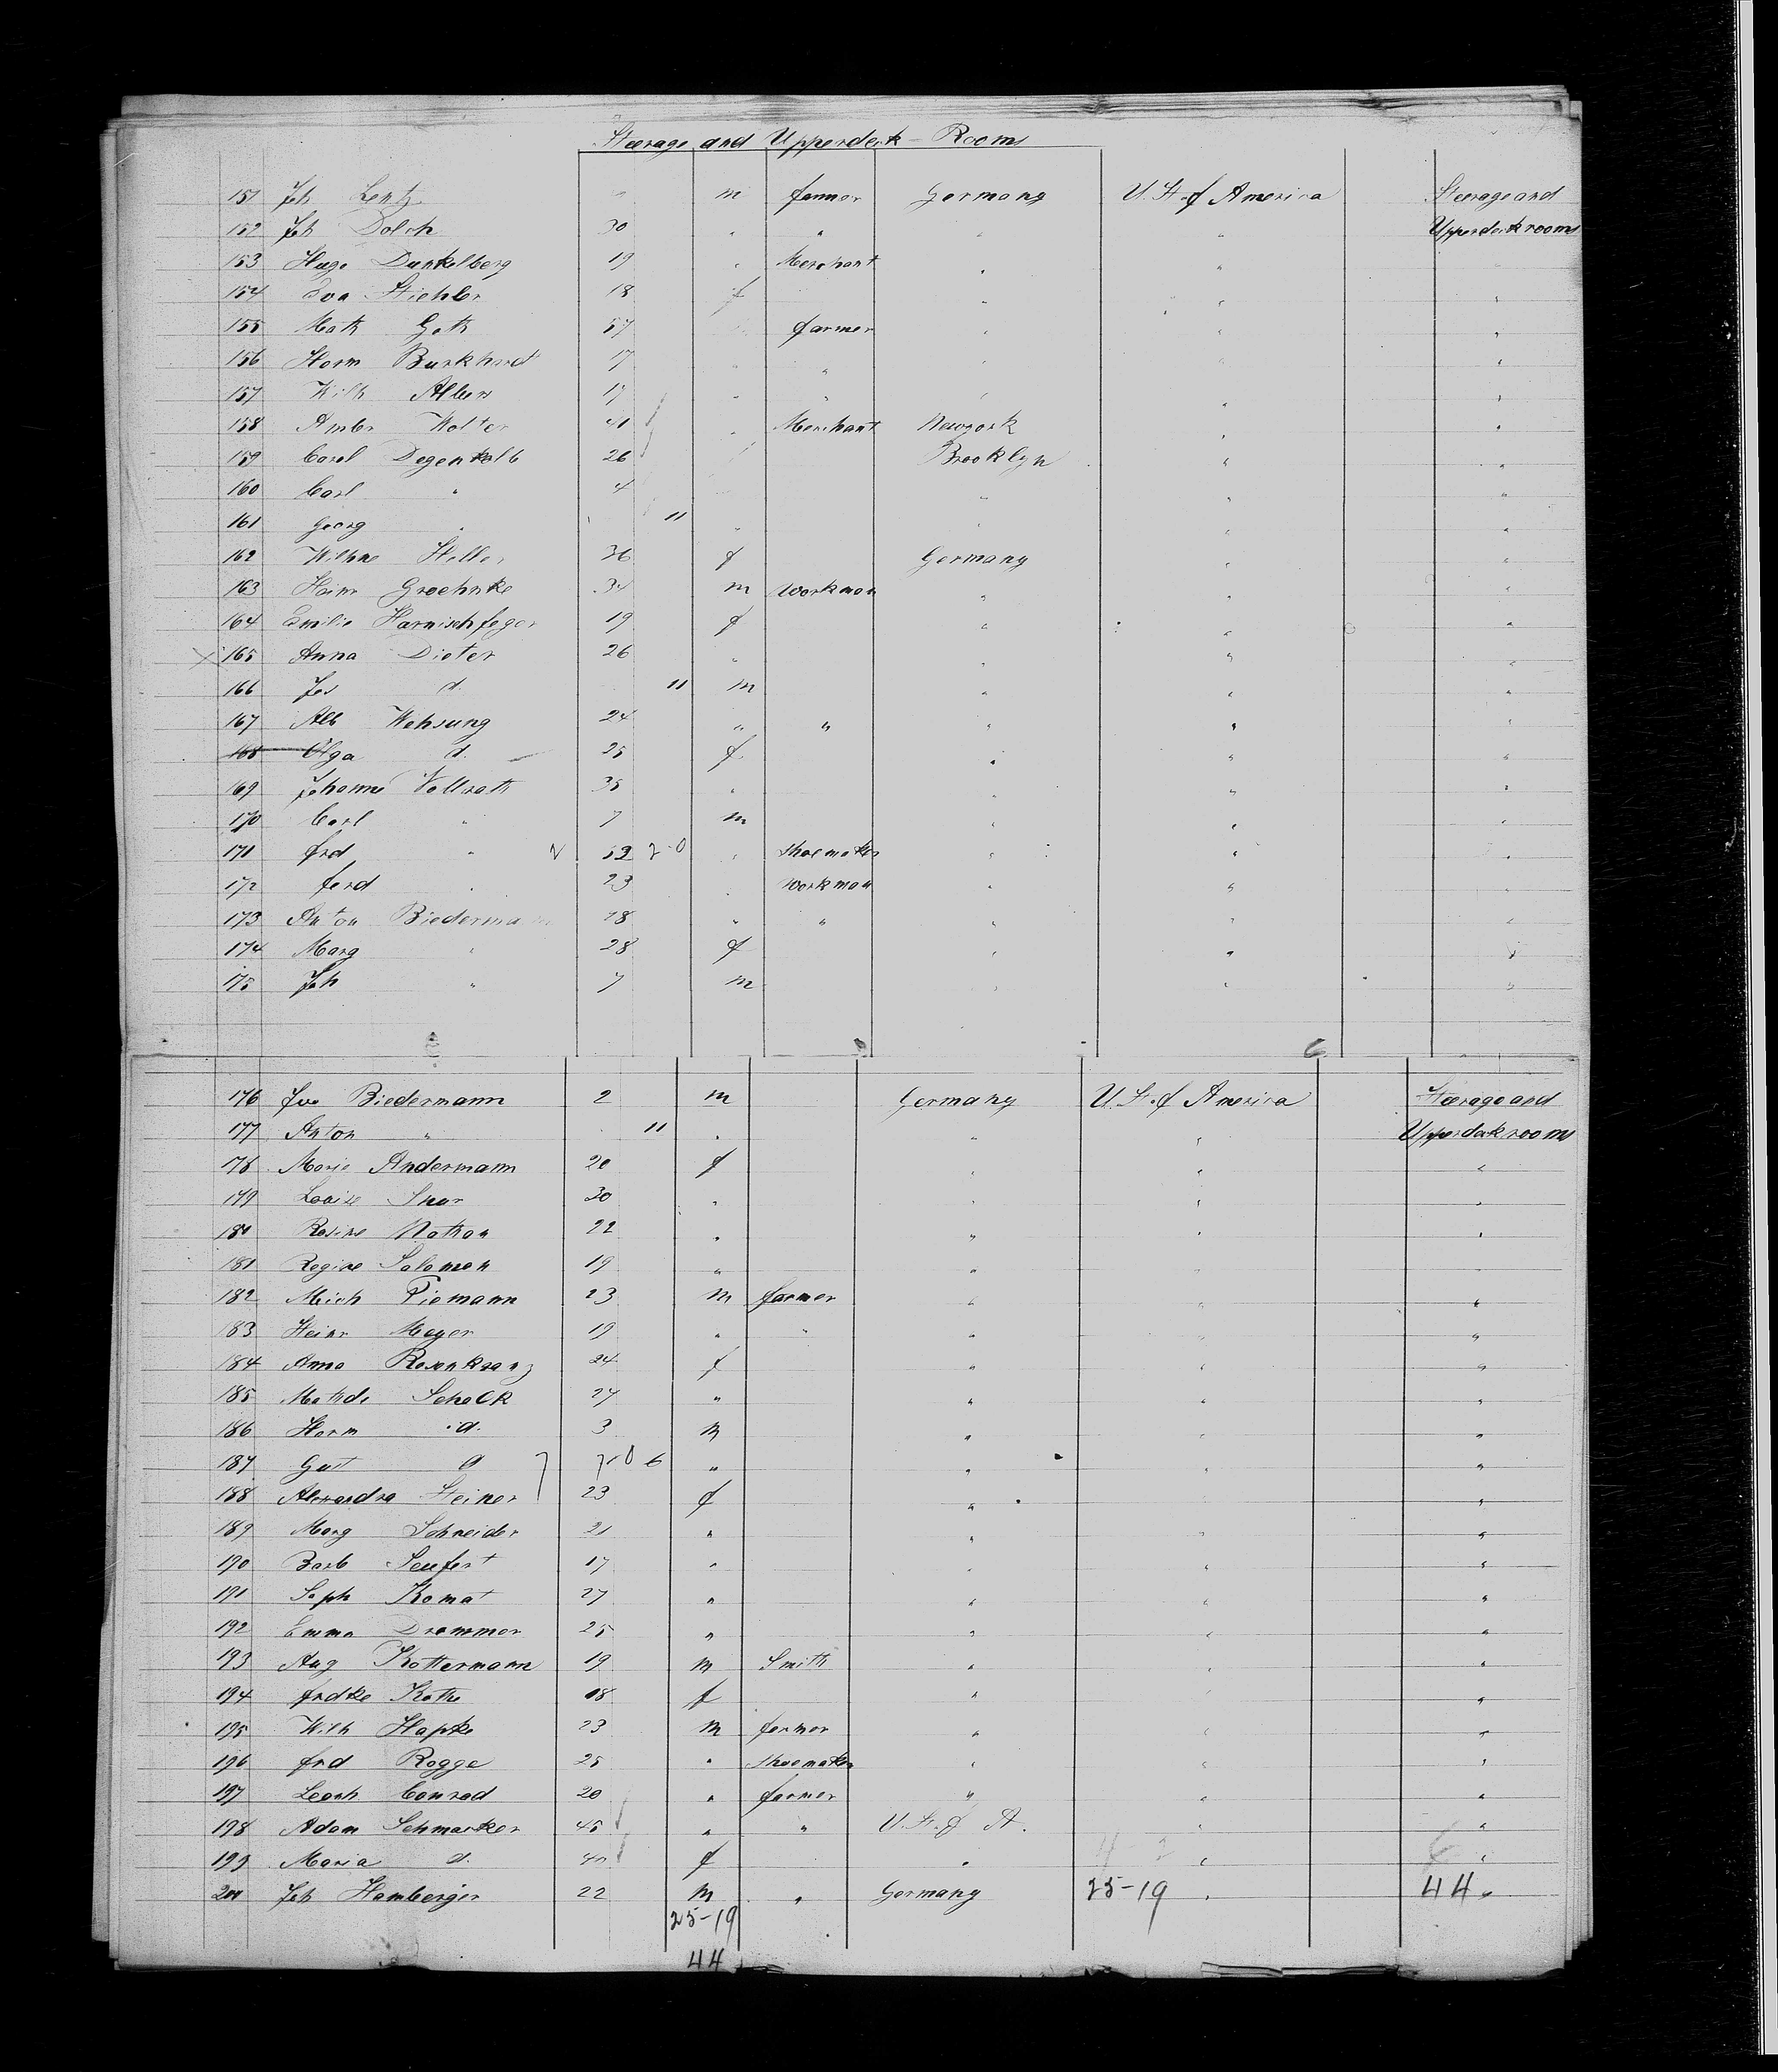 Steerage and Upperdeck-Rooms
151 Joh Lentz " m farmer Germany U. St. of America Steerage and
152 Joh Dolch 30 " " " " Upperdeck rooms
153 Hugo Dunkelberg 19 " Merchant " "
154 Eva Stiehler 18 f " " "
155 Math Goth 57 farmer " " "
156 Herm Burkhard 17 " " " " "
157 Wilh Albers 17 " " " " "
158 Ambr Wolter 41 " Merchant Newyork " "
159 Carol Degenkolb 26 Brooklyn " "
160 Carl " 4 " " "
161 Georg " 11 " " " "
162 Wilhne Steller 36 f Germany " "
163 Heinr Groehnke 34 m Workman " " "
164 Emilie Harnischfeger 19 f " " "
165 Anna Dieter 26 " " " "
166 Jos d. 11 m " " "
167 Alb Wehsung 24 " " " " "
168 Olga d. 25 f " " "
169 Johanne Vollrath 35 " " " "
170 Carl " 7 m " " "
171 frd " 52 20 " Shoemaker " " "
172 ferd " 23 " Workman " " "
173 Anton Biedermann 28 " " " " "
174 Marg " 28 f " " "
175 Joh " 7 m " " "
176 Jos Biedermann 2 m Germany U. St. of America Steerage and
177 Anton " 11 " " " Upperdeck rooms
178 Marie Andermann 20 f " " "
179 Louise 30 " " " "
180 Rosine Nathan 22 " " " "
181 Regine Salomon 19 " " " "
182 Mich Tiemann 23 m farmer " " "
183 Heinr Meyer 19 " " " " "
184 Anna Rosenkranz 24 f " " "
185 Mathde Schalk 27 " " " "
186 Herm d. 3 m " " "
187 Gust d 6 " " " "
188 Alexandra Steiner 23 f " " "
189 Marg Schneider 21 " " " "
190 Barb Seufert 17 " " " "
191 Soph Komat 27 " " " "
192 Emma Drommer 25 " " " "
193 Aug Kottermann 19 m Smith " " "
194 frdke Kothe 18 f " " "
195 Wilh Hapke 23 m farmer " " "
196 frd Rogge 25 " Shoemaker " " "
197 Leonh Conrad 20 " farmer " " "
198 Adam Schmarker 45 " " U. St. of A. " "
199 Maria d. 40 f " " "
200 Joh Hamberger 22 m " Germany 25-19 " 44 "
25-19
44